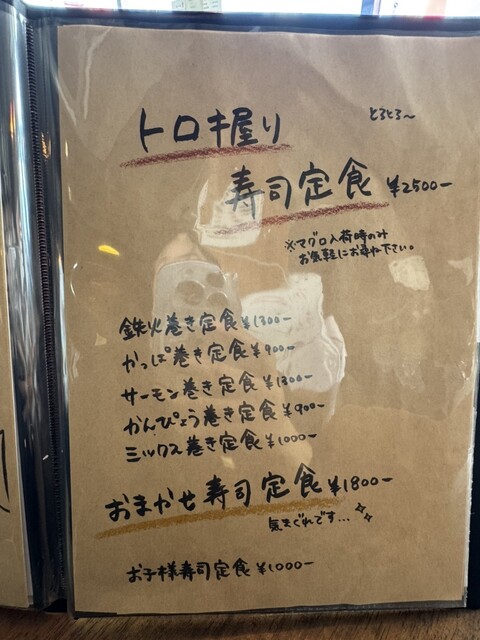 とろとろ〜
トロキ屋り
寿司定食 ¥2500-
※マグロ入荷時のみ
お気軽にお尋ね下さい。
鉄火巻き定食 ¥1300-
かっぱ巻き定食 ¥900-
サーモン巻き定食 ¥1300-
かんぴょう巻き定食 ¥900-
ミックス巻き定食 ¥1000-
おまかせ寿司定食 ¥1800-
気まぐれです...
お子様寿司定食 ¥1000-